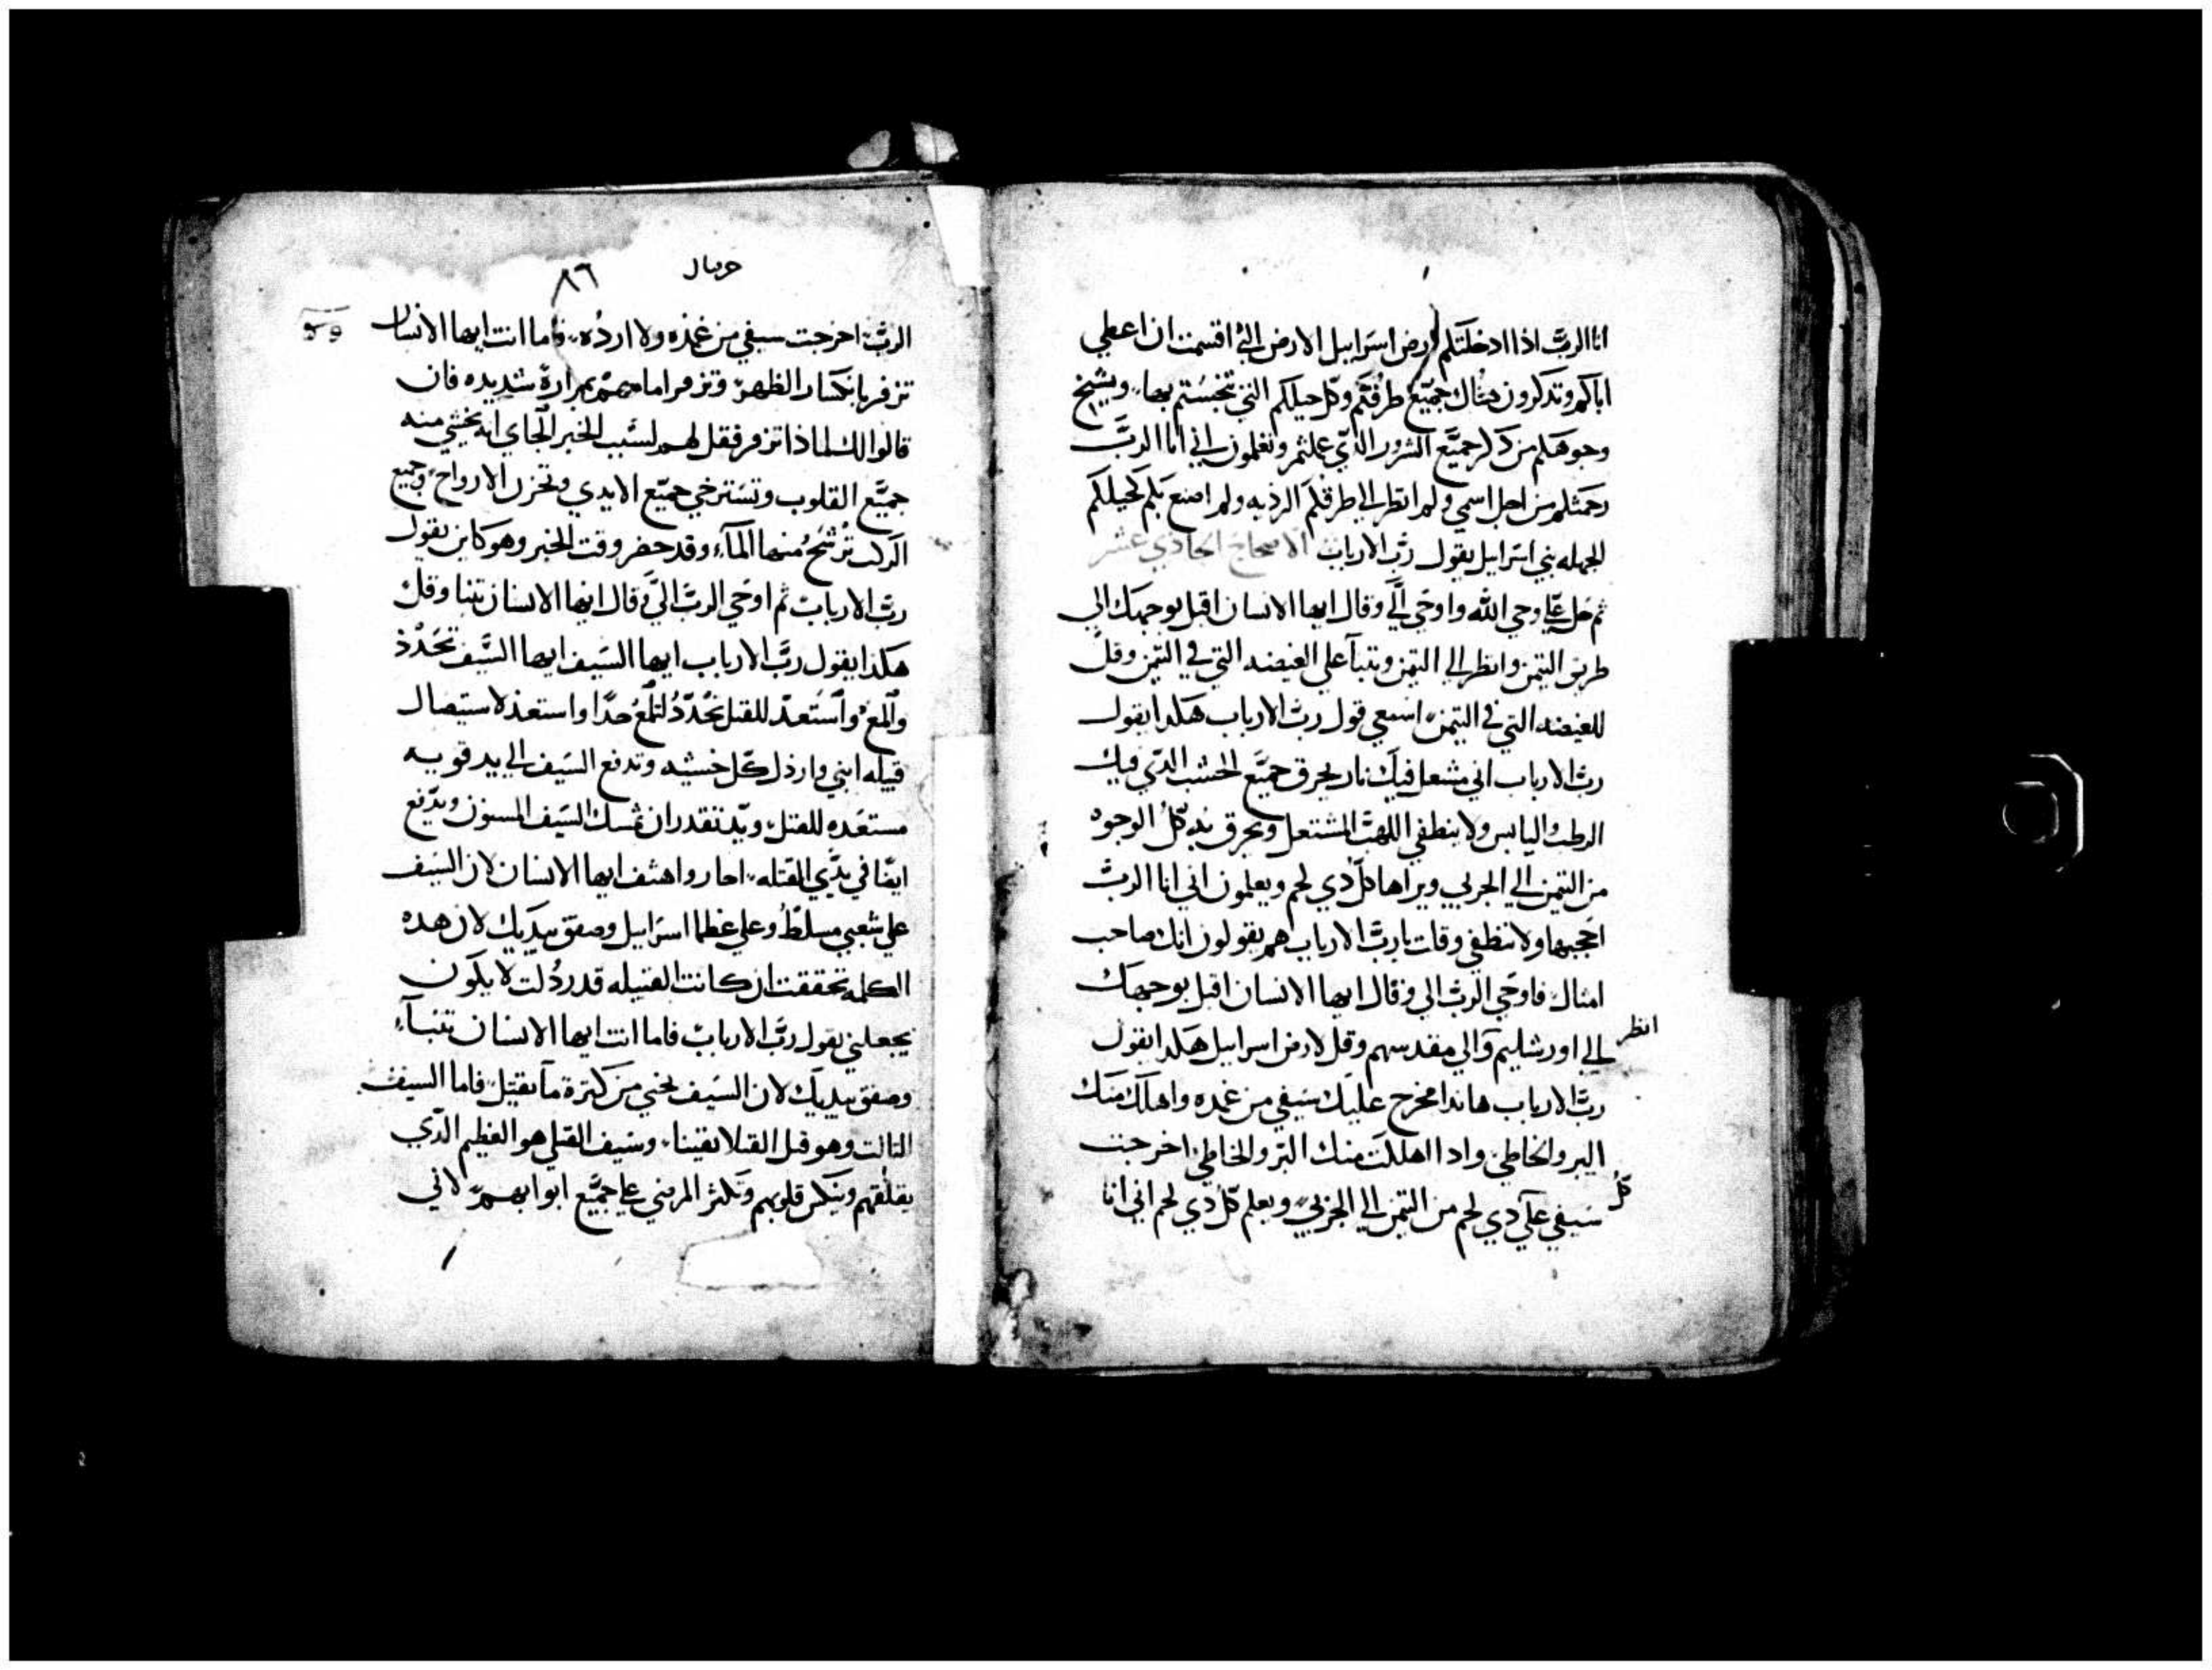 انا الرب اذا ادخلتكم ارض اسراييل الارض التي اقسمت ان اعطي
اباكم وتدكرون هناك جميع طرقكم وكل حيلكم التي تنجستم بها، ويشيخ
وجوهكم من دكر جميع الشرور الدي عملتم وتعلمون اني انا الرب
رحمتكم من اجل اسمي ولم انظر الي طرقكم الرذيه ولم اصنع بكم كحيلكم
الجمله بني اسراييل يقول رب الارباب الاصحاح الحادي عشر
ثم حل علي وحي الله واوحي الي وقال ايها الانسان اقبل بوجهك الي
طريق التيمن وانظر الي التيمن وتنبآ علي الغيضه التي في التيمن وقل
للغيضه التي في التيمن اسمعي قول رب الارباب هكدا يقول
رب الارباب اني مشعل فيك نار يحرق جميع الخشب الدي فيك
الرطب واليابس ولا ينطفي اللهب المشتعل ويحرق به كل الوجوه
من التيمن الي الجربي ويراها كل دي لحم ويعلمون اني انا الرب
اججبها ولا تنطفي وقلت يا رب الارباب هم يقولون انك صاحب
امثال فاوحي الرب الي وقال ايها الانسان اقبل بوجهك
انظر
الي اورشليم والي مقدسهم وقل لارض اسراييل هكدا يقول
رب الارباب هاندا مخرج عليك سيفي من غمده واهلك منك
البر والخاطي وادا اهلكت منك البر والخاطي اخرجت
كل
سيفي علي دي لحم من التيمن الي الجربي ويعلم كل دي لحم اني انا
حزقيال
٨٦
الرب اخرجت سيفي من غمده ولا ارده، فاما انت ايها الانسان
تزفر بانكسار الظهر وتزفر امامهم بمرارة شديده فان
قالوا لك لماذا تزفر فقل لهم لسبب الخبر الجاي انه يختشي منه
جميع القلوب وتسترخي جميع الايدي وتحزن الارواح وجميع
الركب ترشح منها المآء وقد حضر وقت الخبر وهو كاين يقول
رب الارباب ثم اوحي الرب الي وقال ايها الانسان تنبا وقل
هكذا يقول رب الارباب ايها السيف ايها السيف تحدد
والمع واستعد للقتل تحدد لتلمع حدا واستعد لاستيصال
قبيله ابني وارذل كل خشبه وتدفع السيف الي يد قويه
مستعده للقتل ويد تقدر ان تمسك السيف المسنون ويدفع
ايضا في يدي القتله، اجار واهتف ايها الانسان لان السيف
علي شعبي مسلط وعلي عظما اسراييل وصفق بيديك لان هده
الكلمه تحققت ان كانت القبيله قد ردلت لا يكون
يجعلني يقول رب الارباب فاما انت ايها الانسان تتنبآء
وصفق بيديك لان السيف يخني من كترة ما يقتل فاما السيف
التالت وهو قبل القتلا يقينا، وسيف القتلي هو العظيم الدي
يقلقهم وينكس قلوبهم وتكثر المرضي علي جميع ابوابهم لاني